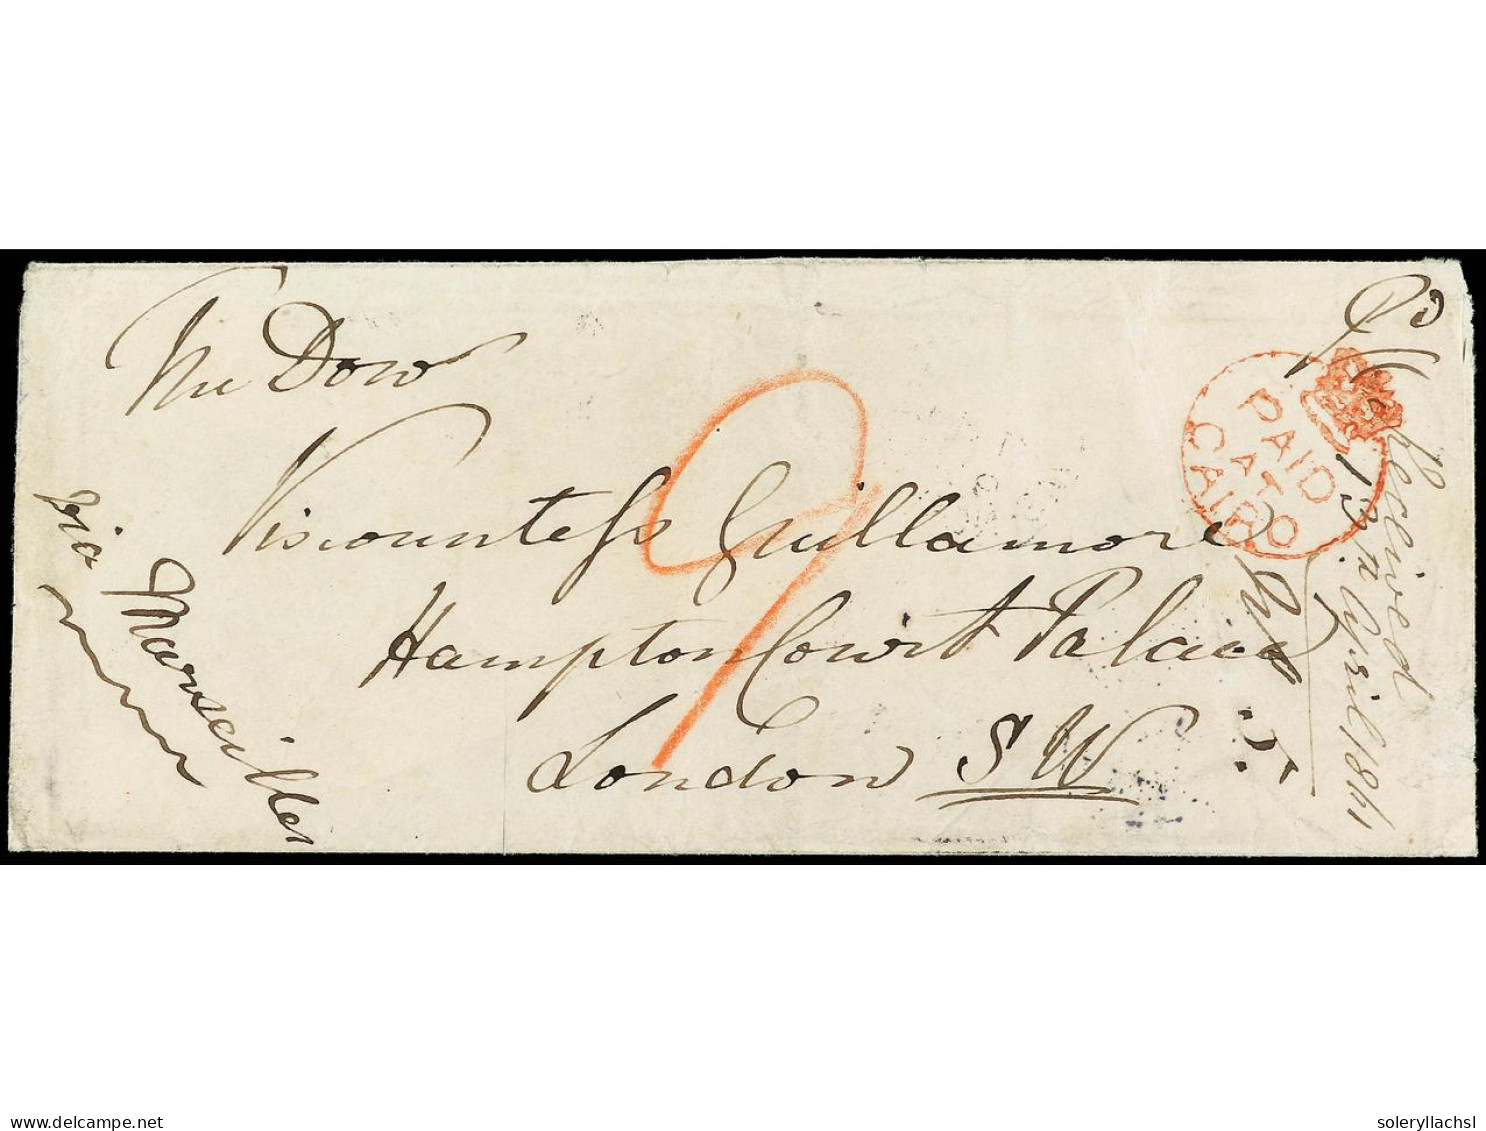 The Dow
Viscountess Guillamore
Hampton Court Palace
London SW
via Marseilles
PAID
AT
CAIRO
Received
13th April 1861
9
delcampe.net
soleryllachsl